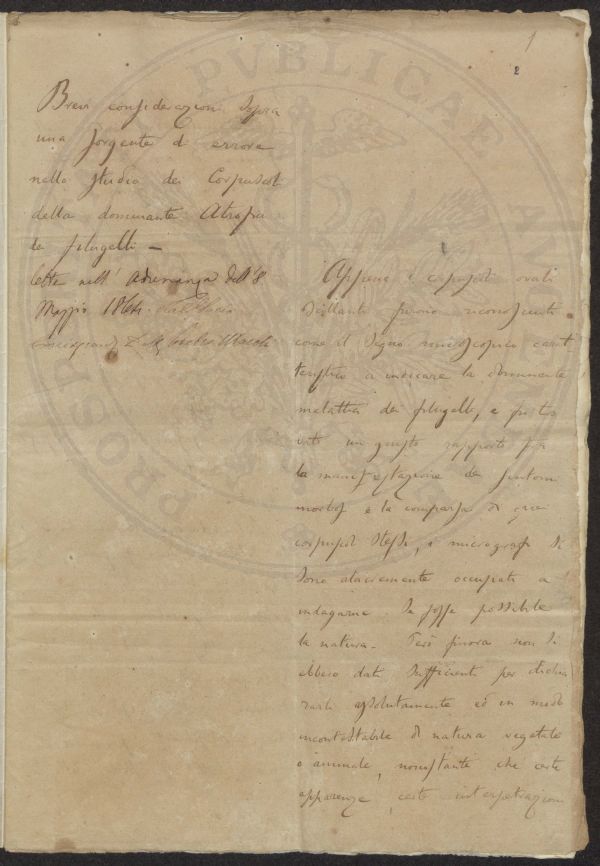 1
2
Brevi considerazioni sopra
una sorgente di errore
nello studio dei Corpuscoli
della dominante Atrofia
de filugelli —
letta nell' adunanza dell' 8
Maggio 1864.
Appena i corpuscoli ovali
oscillanti furono riconosciuti
come il segno microscopico carat
teristico a indicare la dominante
malattia dei filugelli, e fu tro
vato un giusto rapporto fra
la manifestazione de sintomi
morbosi e la comparsa di quei
corpuscoli stessi, i micrografi si
sono alacremente occupati a
indagarne se fosse possibile
la natura. Però finora non si
ebbero dati sufficienti per dichia
rarli assolutamente ed in modo
incontestabile di natura vegetale
o animale, nonostante che certe
apparenze, certe interpetrazioni
PUBLICAE
PROSP